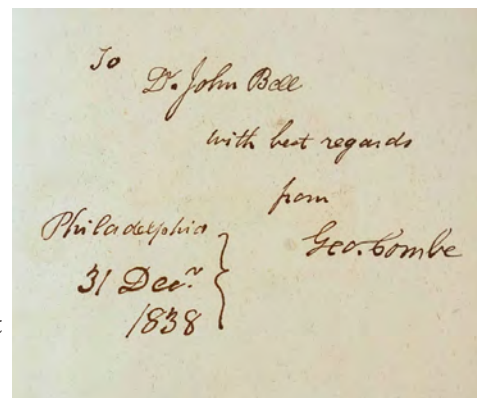 To
Dr. John Bell
with best regards
from
Geo. Combe
Philadelphia
31 Decr.
1838
t